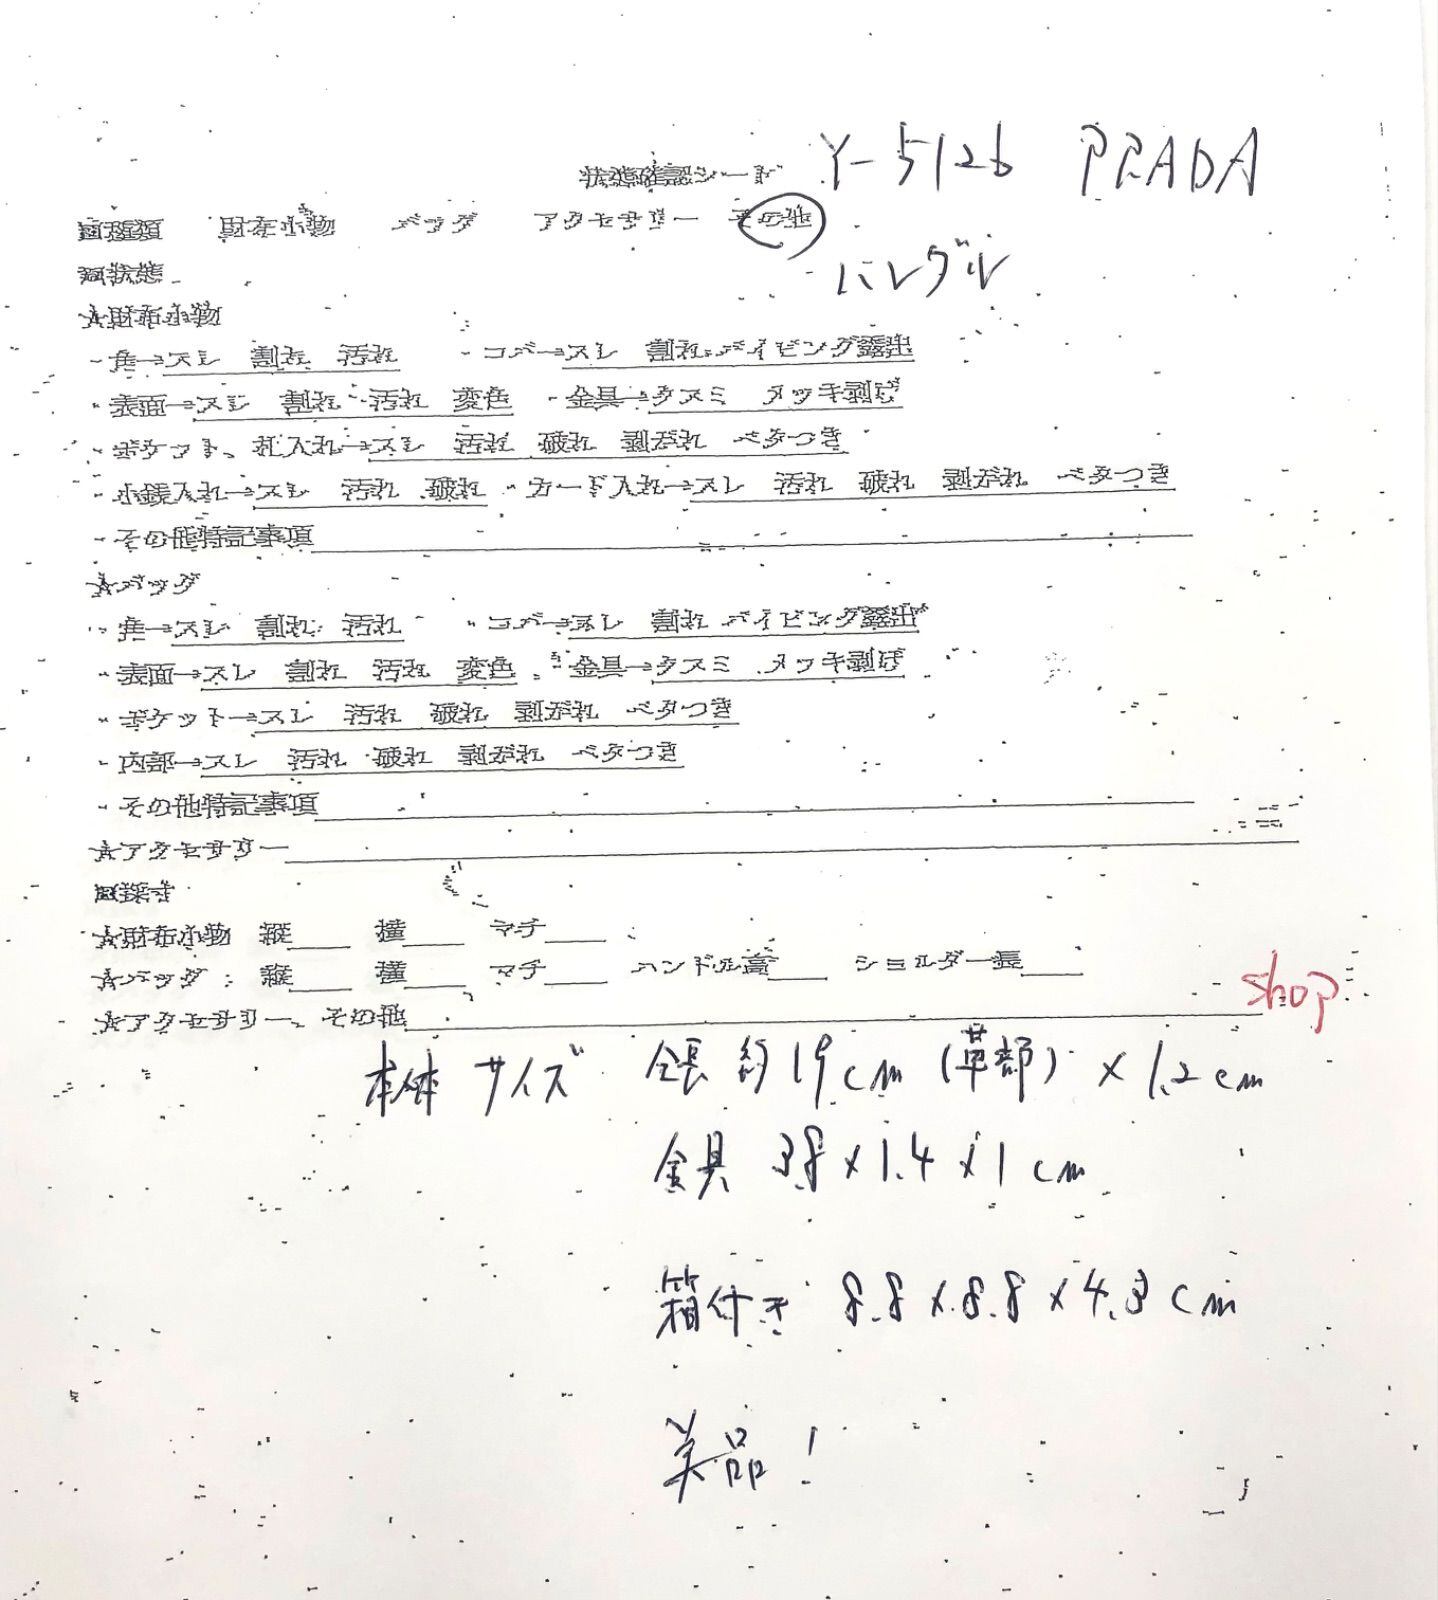 状態確認シート Y-5126 PRADA
□種類 財布小物 バッグ アクセサリー その他
バングル
□状態
☆財布小物
・角→スレ 割れ 汚れ ・コバ→スレ 割れ パイピング露出
・表面→スレ 割れ 汚れ 変色 ・金具→クスミ メッキ剥げ
・ポケット、札入れ→スレ 汚れ 破れ 剥がれ ベタつき
・小銭入れ→スレ 汚れ 破れ ・カード入れ→スレ 汚れ 破れ 剥がれ ベタつき
・その他特記事項
☆バッグ
・角→スレ 割れ 汚れ ・コバ→スレ 割れ パイピング露出
・表面→スレ 割れ 汚れ 変色 ・金具→クスミ メッキ剥げ
・ポケット→スレ 汚れ 破れ 剥がれ ベタつき
・内部→スレ 汚れ 破れ 剥がれ ベタつき
・その他特記事項
☆アクセサリー
□採寸
☆財布小物 縦 横 マチ
☆バッグ 縦 横 マチ ハンドル高 ショルダー長
shop
☆アクセサリー、その他
本体サイズ 全長 約19cm (革部) × 1.2cm
金具 3.8×1.4×1cm
箱付き 8.8×8.8×4.3cm
美品!